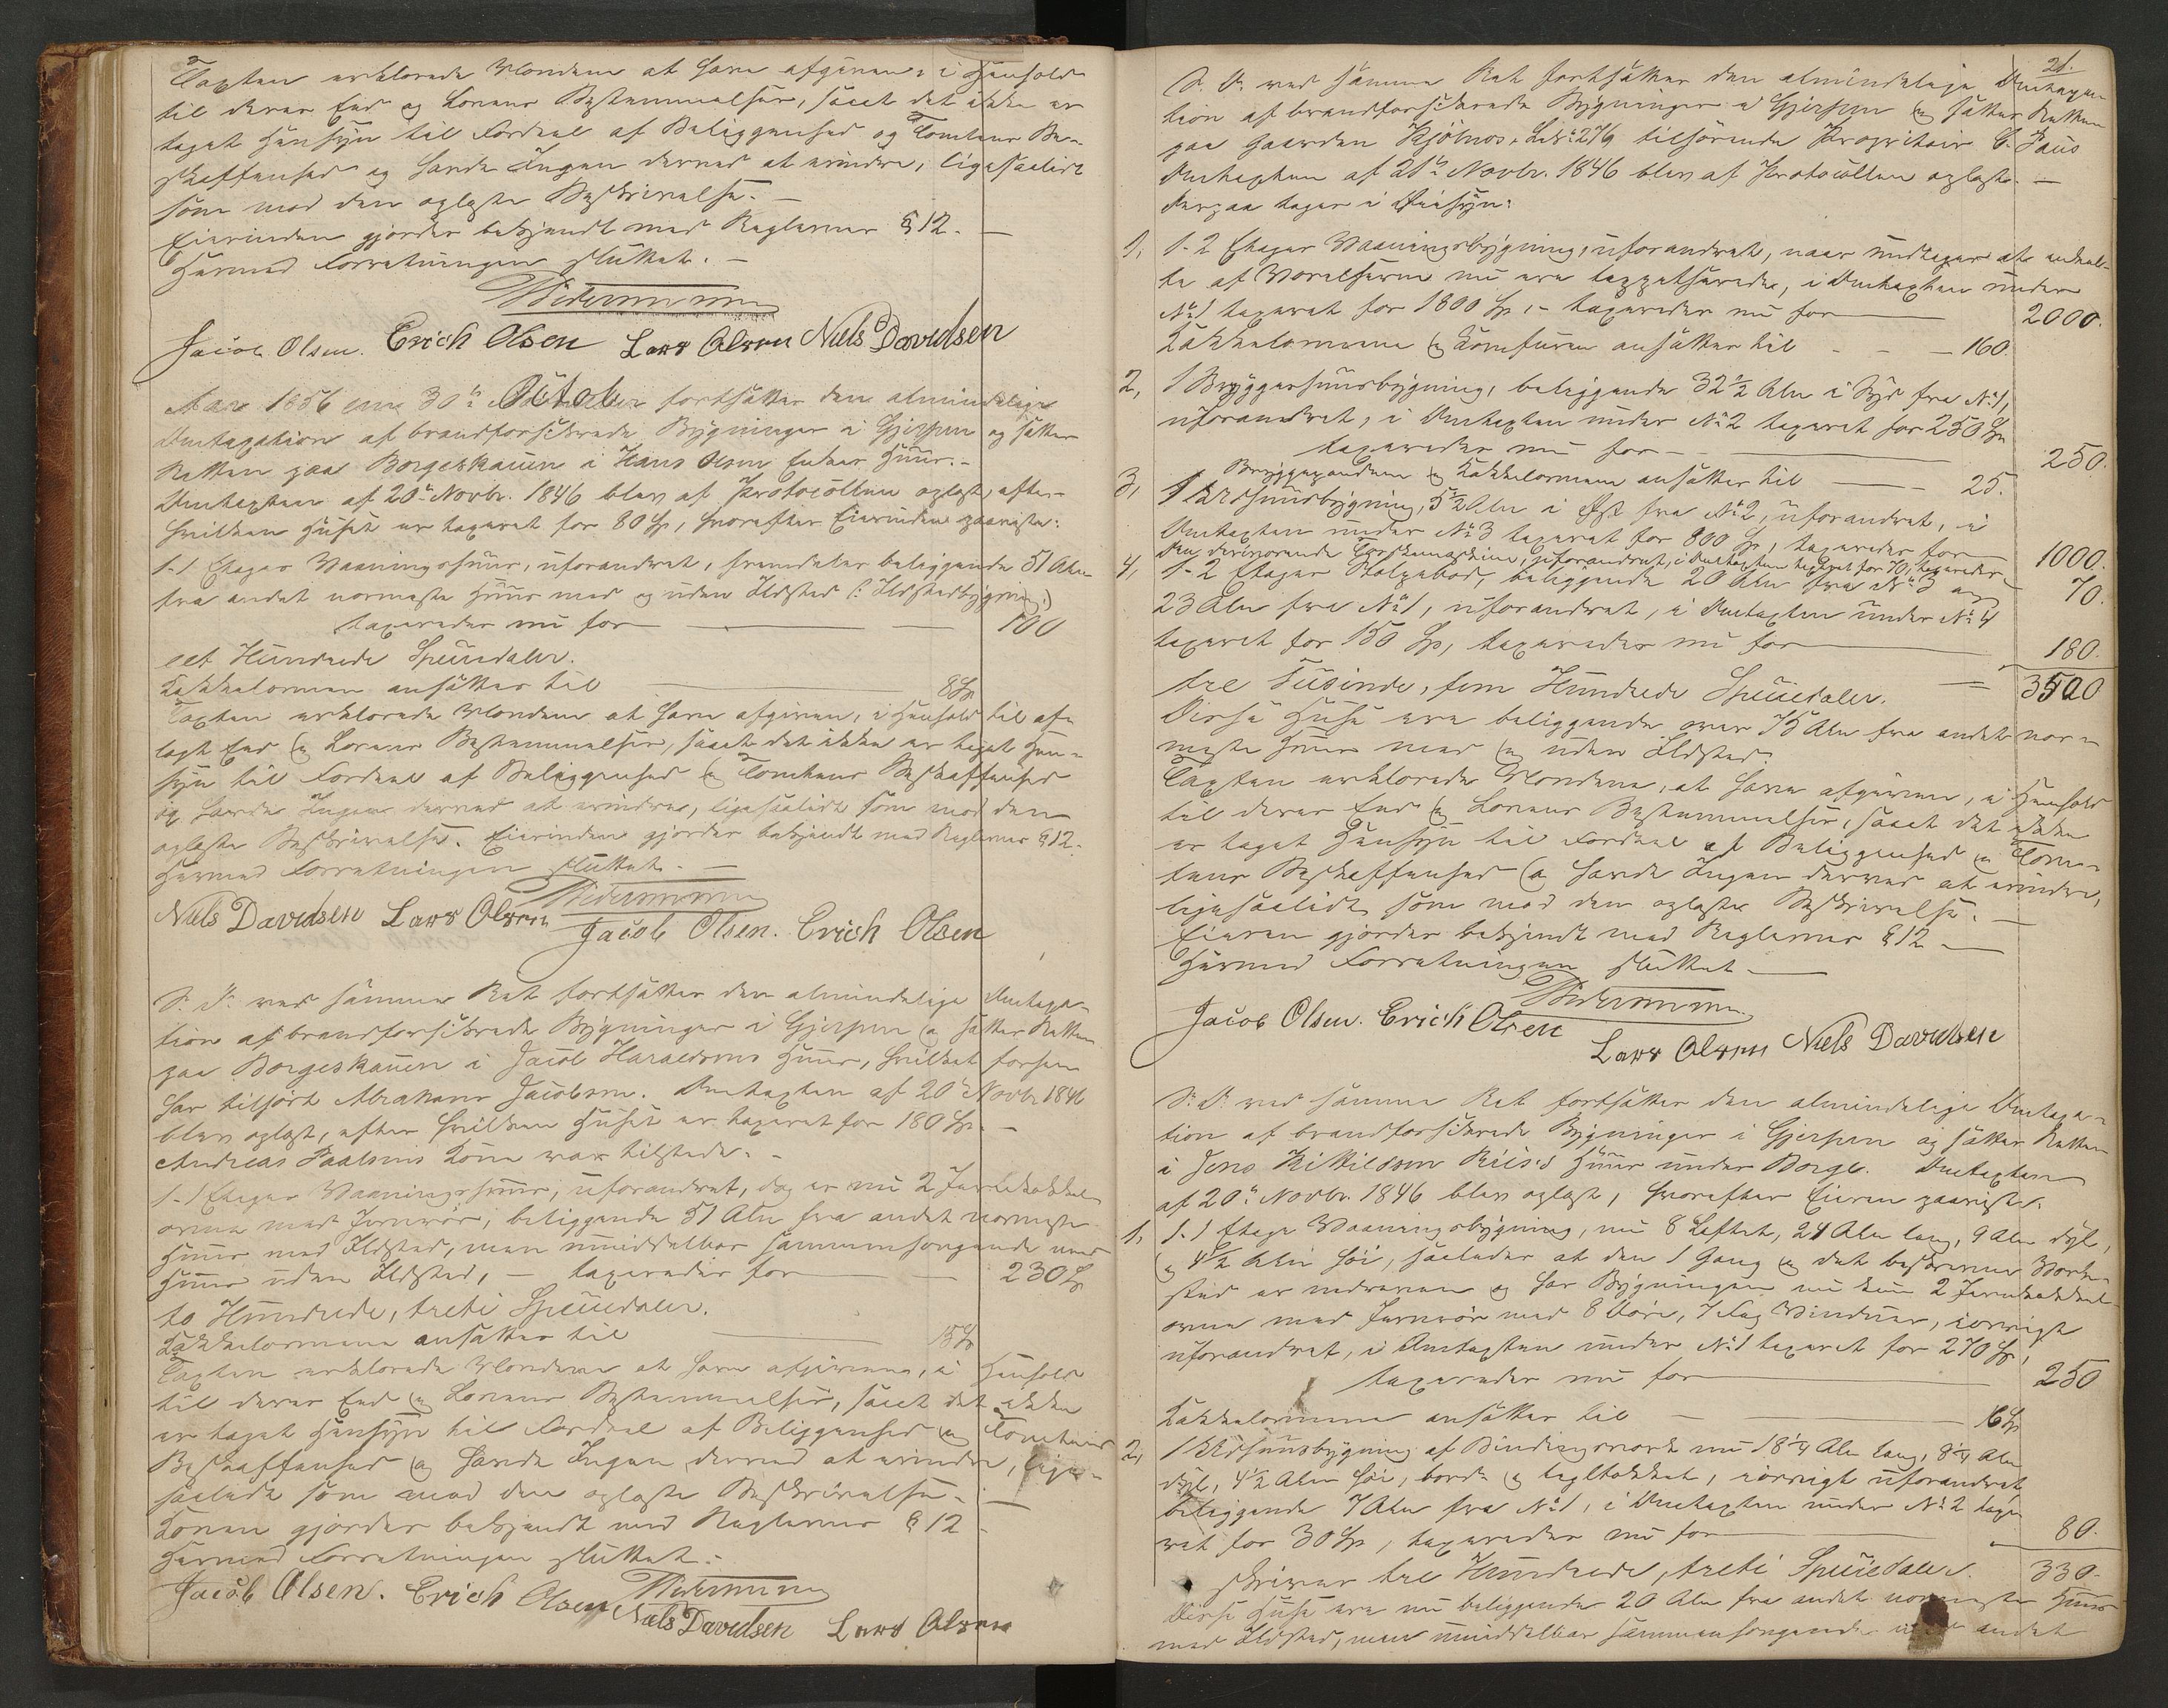 Taxten erklærede Mændene at have afgiven, i Henhold
til deres Eed og Lovens Bestemmelser, saaat det ikke er
taget Hensyn til Fordeel af Beliggenhed og Tomtens Be-
skaffenhed og havde Ingen derved at erindre, ligesaalidt
som mod den oplæste Beskrivelse. —
Eierinden gjordes bekjendt med Reglernes § 12. —
Hermed Forretningen sluttet. —
Jacob Olsen. Erich Olsen Lars Olsen Niels Davidsen
Aar 1856 den 30te October fortsattes den almindelige
Omtaxation af brandforsikrede Bygninger i Gjerpen og sattes
Retten paa Borgeskauen i Hans Olsens Enkes Huus. -
Omtaxten af 20de Novbr. 1846 blev af Protocollen oplæst, efter-
hvilken Huset er taxeret for 80 Sp, hvorefter Eierinden paaviste:
1. 1 Etages Vaaningshuus, uforandret, fremdeles beliggende 51 Alen
fra andet nærmeste Huus med og uden Ildsted (: Ildstedbygning:)
taxeredes nu for — — 100
eet Hundrede Speciedaler.
Kakkelovnen ansattes til — 8 Sp
Taxten erklærede Mændene at have afgiven, i Henhold til af-
lagt Eed og Lovens Bestemmelser, saaat det ikke er taget Hen-
syn til Fordeel af Beliggenhed og Tomtens Beskaffenhed
og havde Ingen derved at erindre, ligesaalidt som mod den
oplæste Beskrivelse. Eierinden gjordes bekjendt med Reglernes § 12.
Hermed Forretningen sluttet. —
Niels Davidsen Lars Olsen
Jacob Olsen. Erich Olsen
S. D. ved samme Ret fortsattes den almindelige Omtaxa-
tion af brandforsikrede Bygninger i Gjerpen og sattes Retten
paa Borgeskauen i Jacob Haraldsens Huus, hvilket forhen
har tilhørt Abraham Jacobsen. Omtaxten af 20de Novbr 1846
blev oplæst, efter hvilken Huset er taxeret for 180 Sp. —
Andreas Paalsens Kone var tilstede. -
1. 1 Etages Vaaningshuus, uforandret, dog er nu 2 Jernkakkel-
ovne med Jernrør, beliggende 51 Alen fra andet nærmeste
Huus med Ildsted, men umiddelbar sammenhængende med
Huus uden Ildsted, — taxeredes for — 230 Sp
to Hundrede, treti Speciedaler.
Kakkelovnene ansattes til — 15 Sp
Taxten erklærede Mændene at have afgiven, i Henhold
til deres Eed og Lovens Bestemmelser, saaat det ikke
er taget Hensyn til Fordeel af Beliggenhed og Tomtens
Beskaffenhed og havde Ingen derved at erindre, lige-
saalidt som mod den oplæste Beskrivelse. —
Konen gjordes bekjendt med Reglernes § 12 -
Hermed Forretningen sluttet. -
Jacob Olsen. Erich Olsen
Niels Davidsen Lars Olsen
21.
S. D. ved samme Ret fortsattes den almindelige Omtaxa-
tion af brandforsikrede Bygninger i Gjerpen og sattes Retten
paa Gaarden Kjølnes, tilhørende Proprietair C. Paus
Omtaxten af 21de Novbr. 1846 blev af Protocollen oplæst. —
Derpaa toges i Øiesyn:
1, 1. 2 Etages Vaaningsbygning, uforandret, naar undtages at endeel-
te af Værelserne nu ere tappetserede, i Omtaxten under
No 1 taxeret for 1800 Sp, - taxeredes nu for — 2000.
Kakkelovnene og Komfuren ansattes til - - — 160.
2, 1 Bryggerhuusbygning, beliggende 32 1/2 Alen i Syd fra No 1,
uforandret, i Omtaxten under No 2 taxeret for 250 Sp
taxeredes nu for — 250.
Bryggepanden og Kakkelovnen ansattes til — 25.
3, 1 Udhuusbygning, 5 1/2 Alen i Øst fra No 2, uforandret, i
Omtaxten under No 3 taxeret for 800 Sp, taxeredes for — 1000.
Den deriværende Tærskemaskine, uforandret, i Omtaxten taxeret for 70, taxeredes — 70.
4, 1. 2 Etages Stolpebod, beliggende 20 Alen fra No 3 og
23 Alen fra No 1, uforandret, i Omtaxten under No 4
taxeret for 150 Sp, taxeredes nu for — 180.
tre Tusinde, fem Hundrede Speciedaler. = 3500
Disse Huse ere beliggende over 75 Alen fra andet nær-
meste Huus med og uden Ildsted.
Taxten erklærede Mændene, at have afgiven, i Henhold
til deres Eed og Lovens Bestemmelser, saaat det ikke
er taget Hensyn til Fordeel af Beliggenhed og Tom-
tens Beskaffenhed og havde Ingen derved at erindre,
ligesaalidt som mod den oplæste Beskrivelse. —
Eieren gjordes bekjendt med Reglernes § 12 —
Hermed Forretningen sluttet —
Jacob Olsen. Erich Olsen
Lars Olsen Niels Davidsen
S. D. ved samme Ret fortsattes den almindelige Omtaxa-
tion af brandforsikrede Bygninger i Gjerpen og sattes Retten
i Jens Kittilsen Riis's Huus under Borge. Omtaxten
af 20de Novbr. 1846 blev oplæst, hvorefter Eieren paaviste.
1, 1. 1 Etages Vaaningsbygning, nu 8 Loftet, 24 Alen lang, 9 Alen dyb,
og 4 1/2 Alen høi, saaledes at den 1 Gang og det beskrevne Værk-
sted er nedreven og har Bygningen nu kun 2 Jernkakkel-
ovne med Jernrør med 8 Døre, 7 Fag Vinduer, iøvrigt
uforandret, i Omtaxten under No 1 taxeret for 270 Sp,
taxeredes nu for — 250
Kakkelovnene ansattes til — 16 Sp
2, 1 Udhuusbygning af Bindingsværk nu 18 1/4 Alen lang, 8 1/4 Alen
dyb, 4 1/2 Alen høi, bord- og tegltækket, iøvrigt uforandret
beliggende 7 Alen fra No 1, i Omtaxten under No 2 taxe-
ret for 30 Sp, taxeredes nu for — 80.
skriver tre Hundrede, treti Speciedaler. 330.
Disse Huse ere nu beliggende 20 Alen fra andet nærmeste Huus
med Ildsted, men umiddelbar sammenhængende med andet